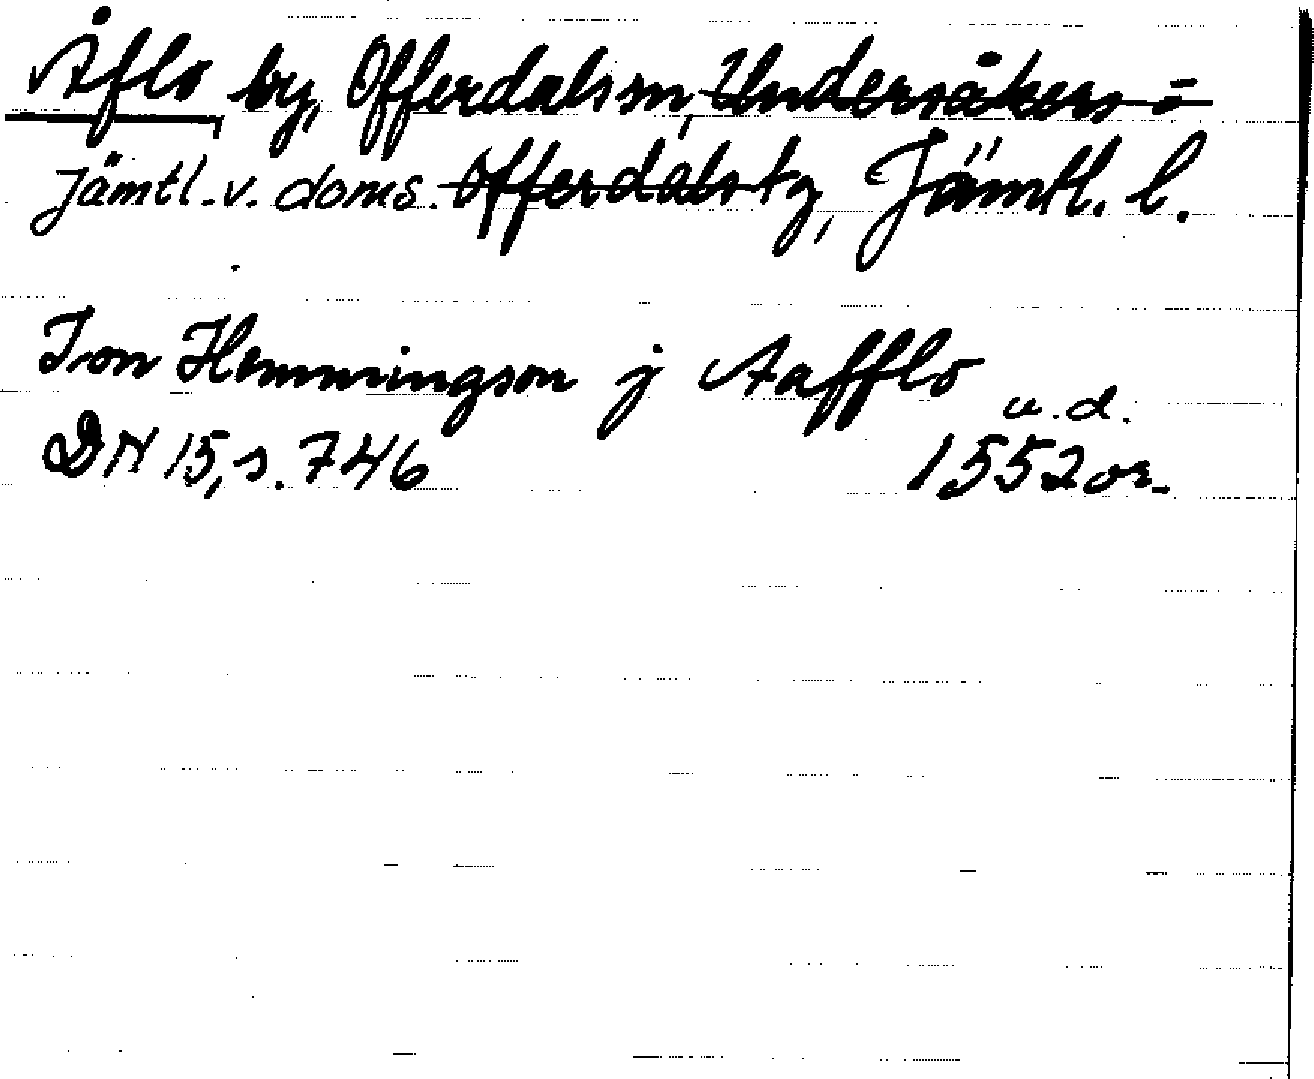 Åflo by, Offerdals sn, Undersåkers =
Jämtl. v. doms. Offerdals tg, Jämtl. l.
Jon Hemmingson j Aafflo
u.d.
DN 15, s. 746 1552 or.